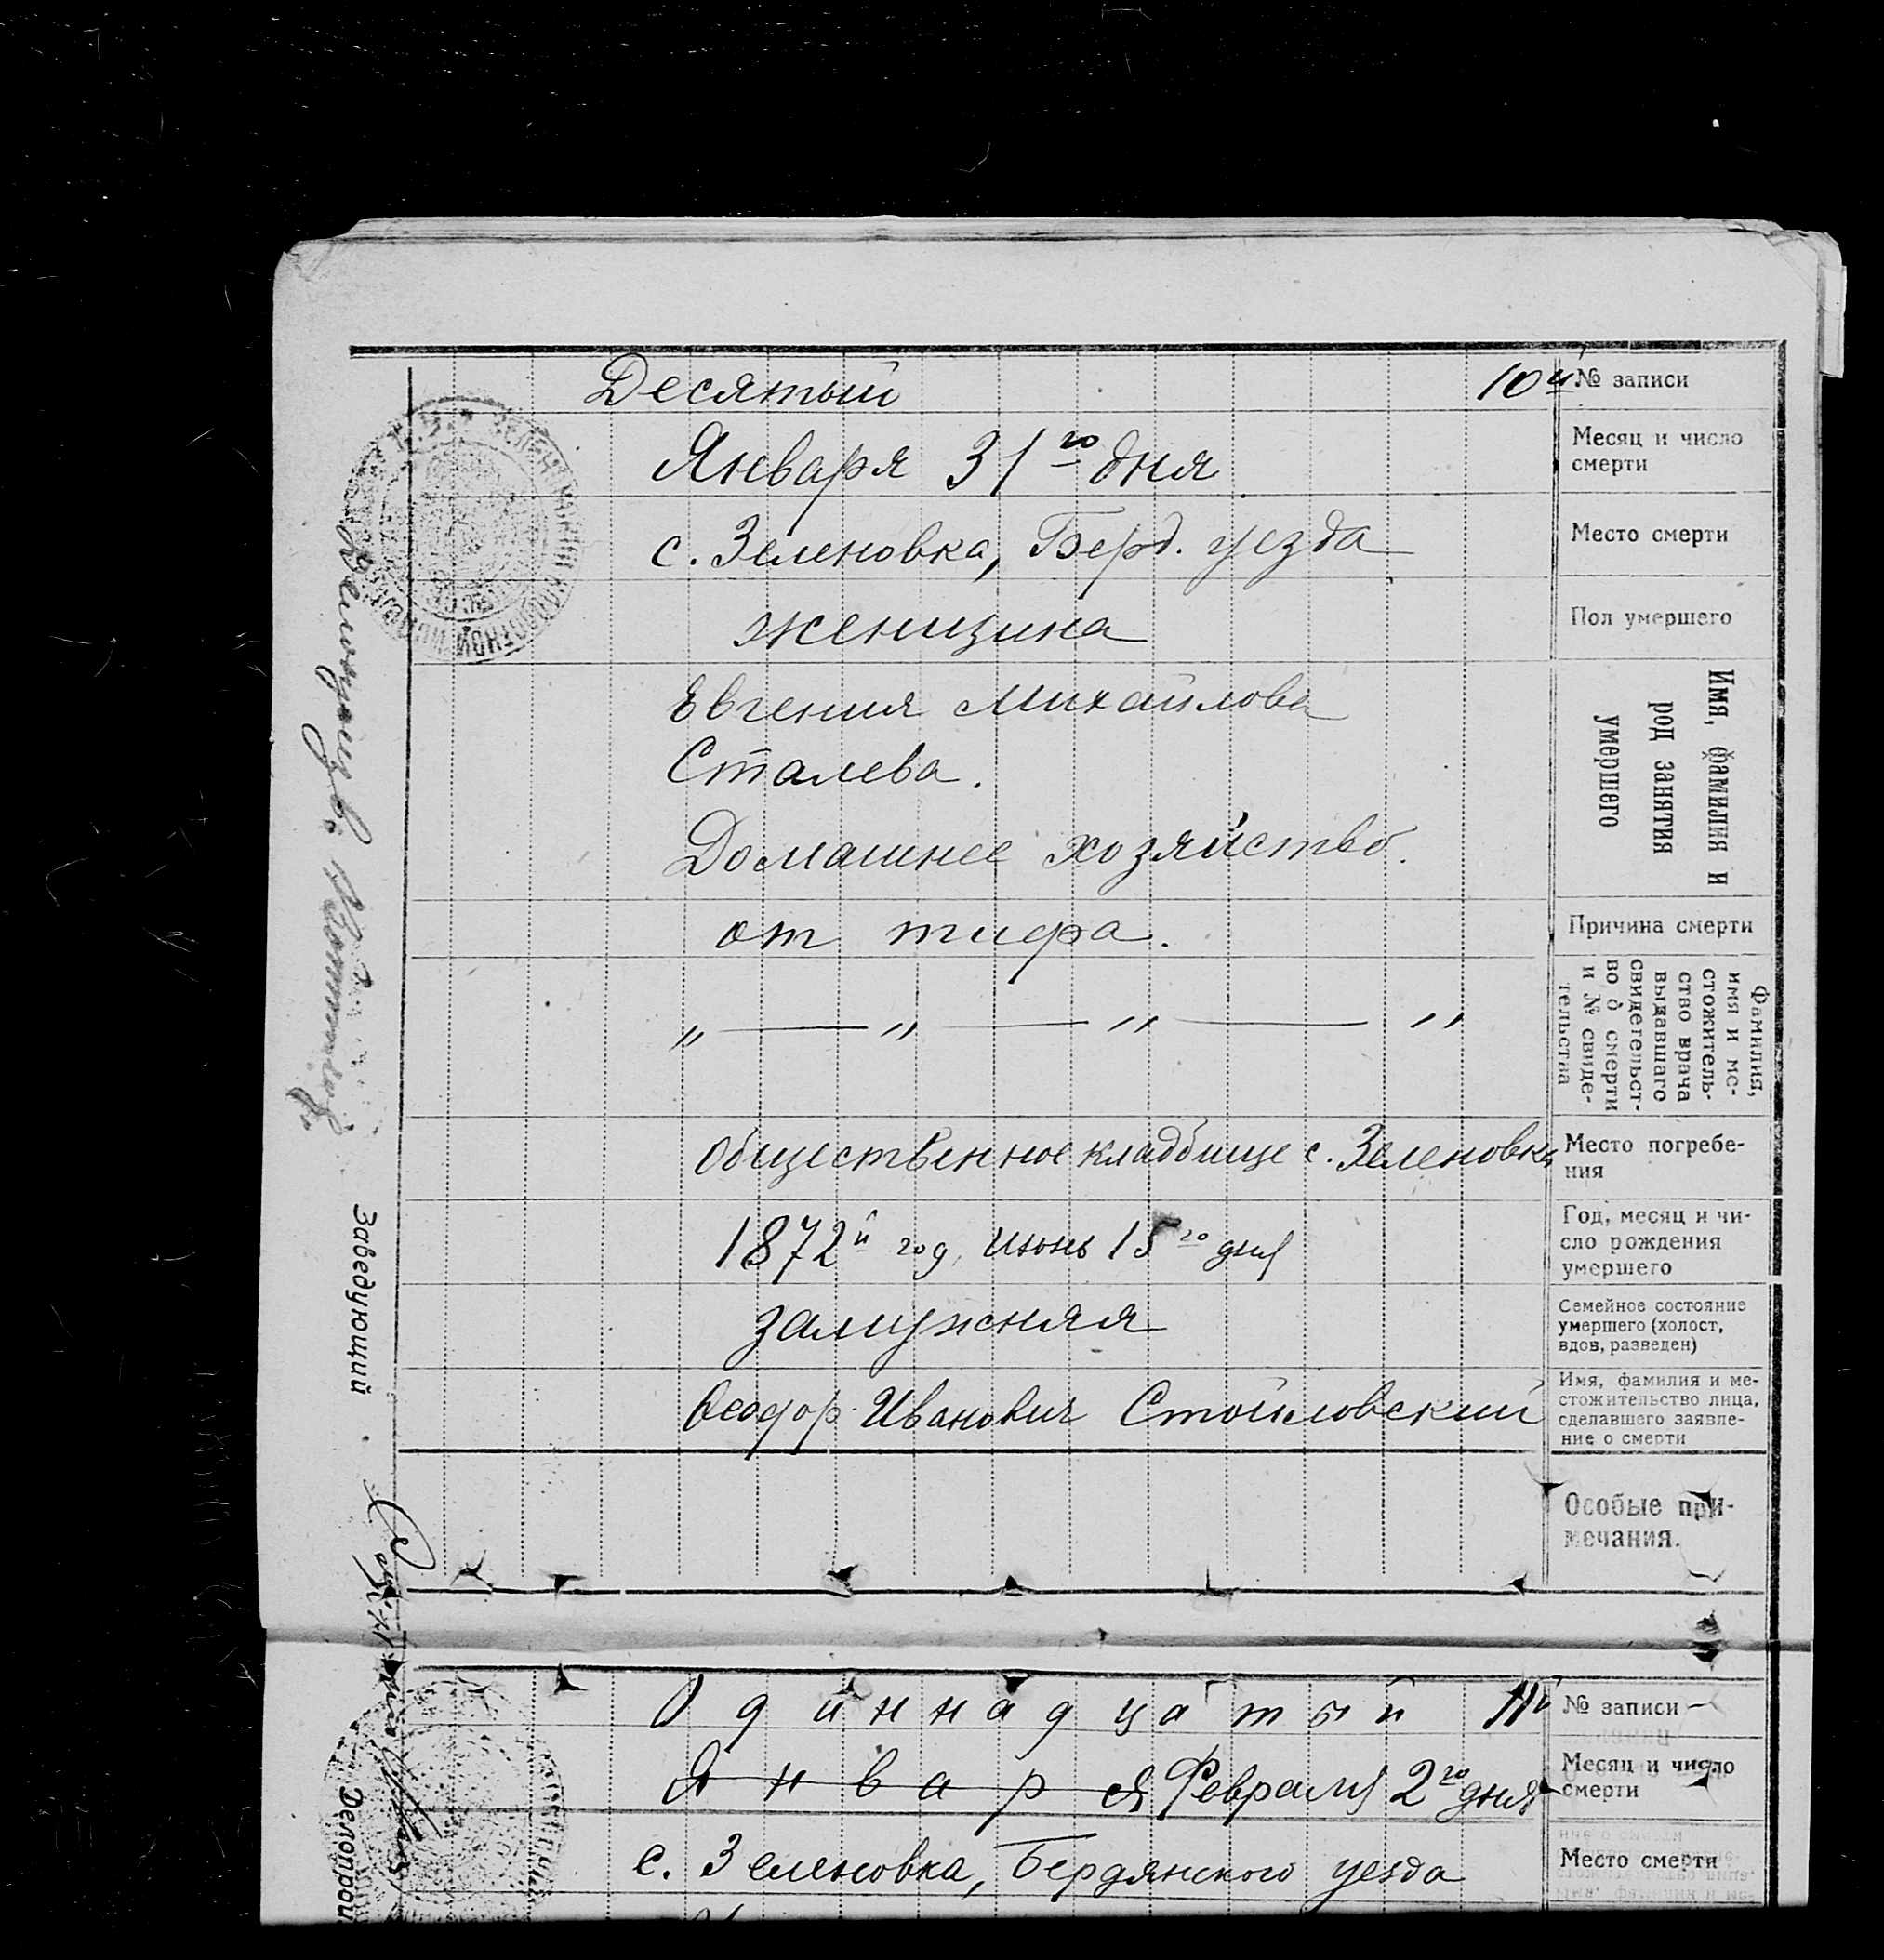 Десятый 10й № записи
Января 31го дня Месяц и число
смерти
с. Зеленовка, Берд. уезда Место смерти
женщина Пол умершего
Евгения Михайлова
Сталева.
Домашнее хозяйство.
Имя, фамилия и
род занятия
умершего
от тифа. Причина смерти
„ — „ — „ — „
Фамилия,
имя и ме-
стожитель-
ство врача
выдавшаго
свидетельст-
во о смерти
и № свиде-
тельства
Общественное кладбище с. Зеленовки Место погребе-
ния
1872й год, июнь 15го дня Год, месяц и чи-
сло рождения
умершего
замужняя Семейное состояние
умершего (холост,
вдов, разведен)
Феодор Иванович Стойловский Имя, фамилия и ме-
стожительство лица,
сделавшего заявле-
ние о смерти
Особые при-
мечания.
Заведующий
Одиннадцатый 11й № записи
Января Февраля 2го дня Месяц и число
смерти
с. Зеленовка, Бердянского уезда Место смерти
Делопрои